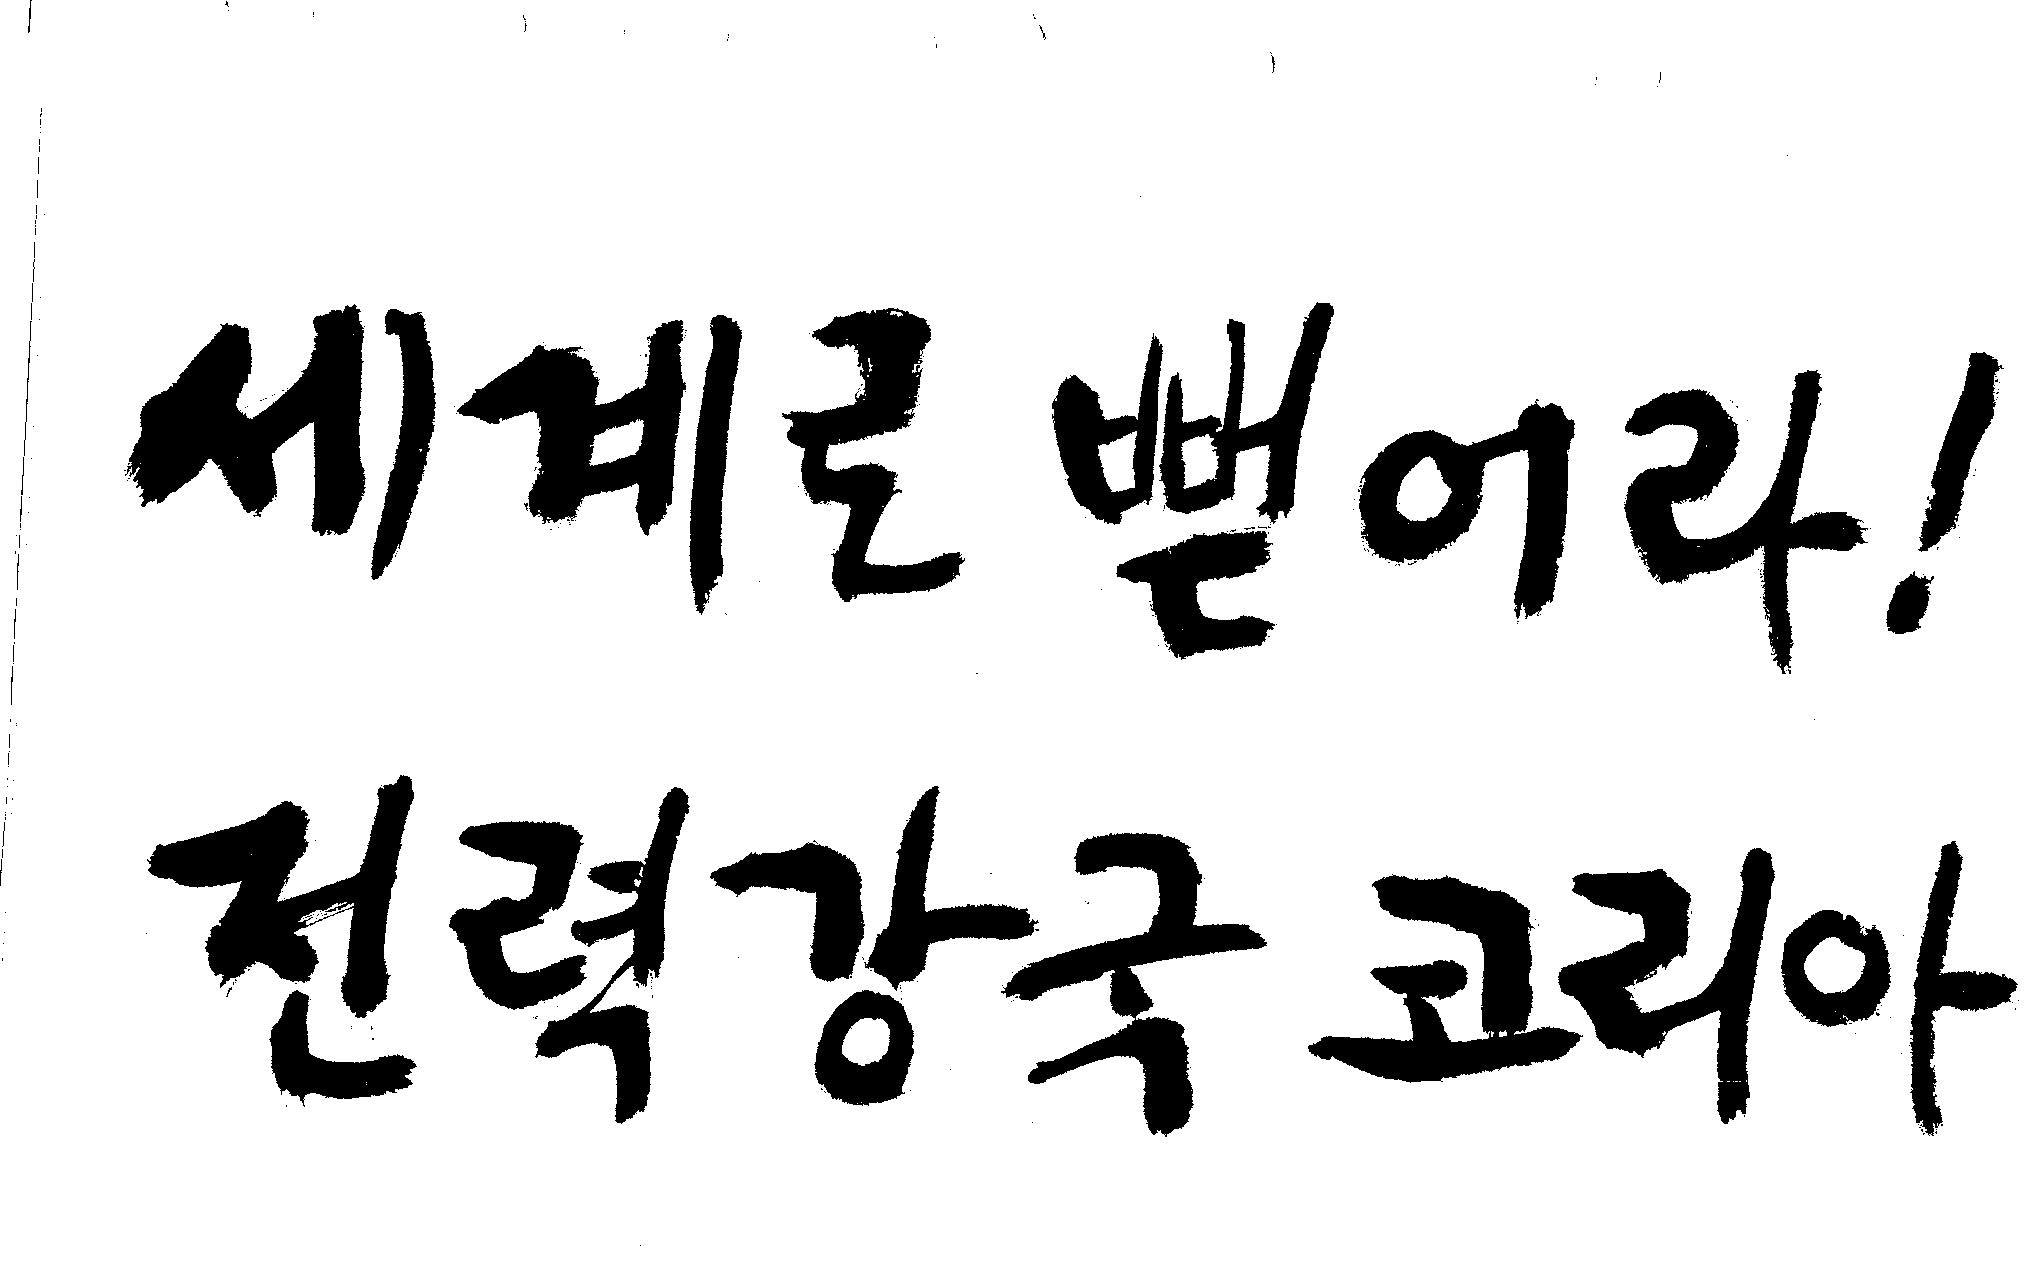 세계로 뻗어라!
전력강국 코리아